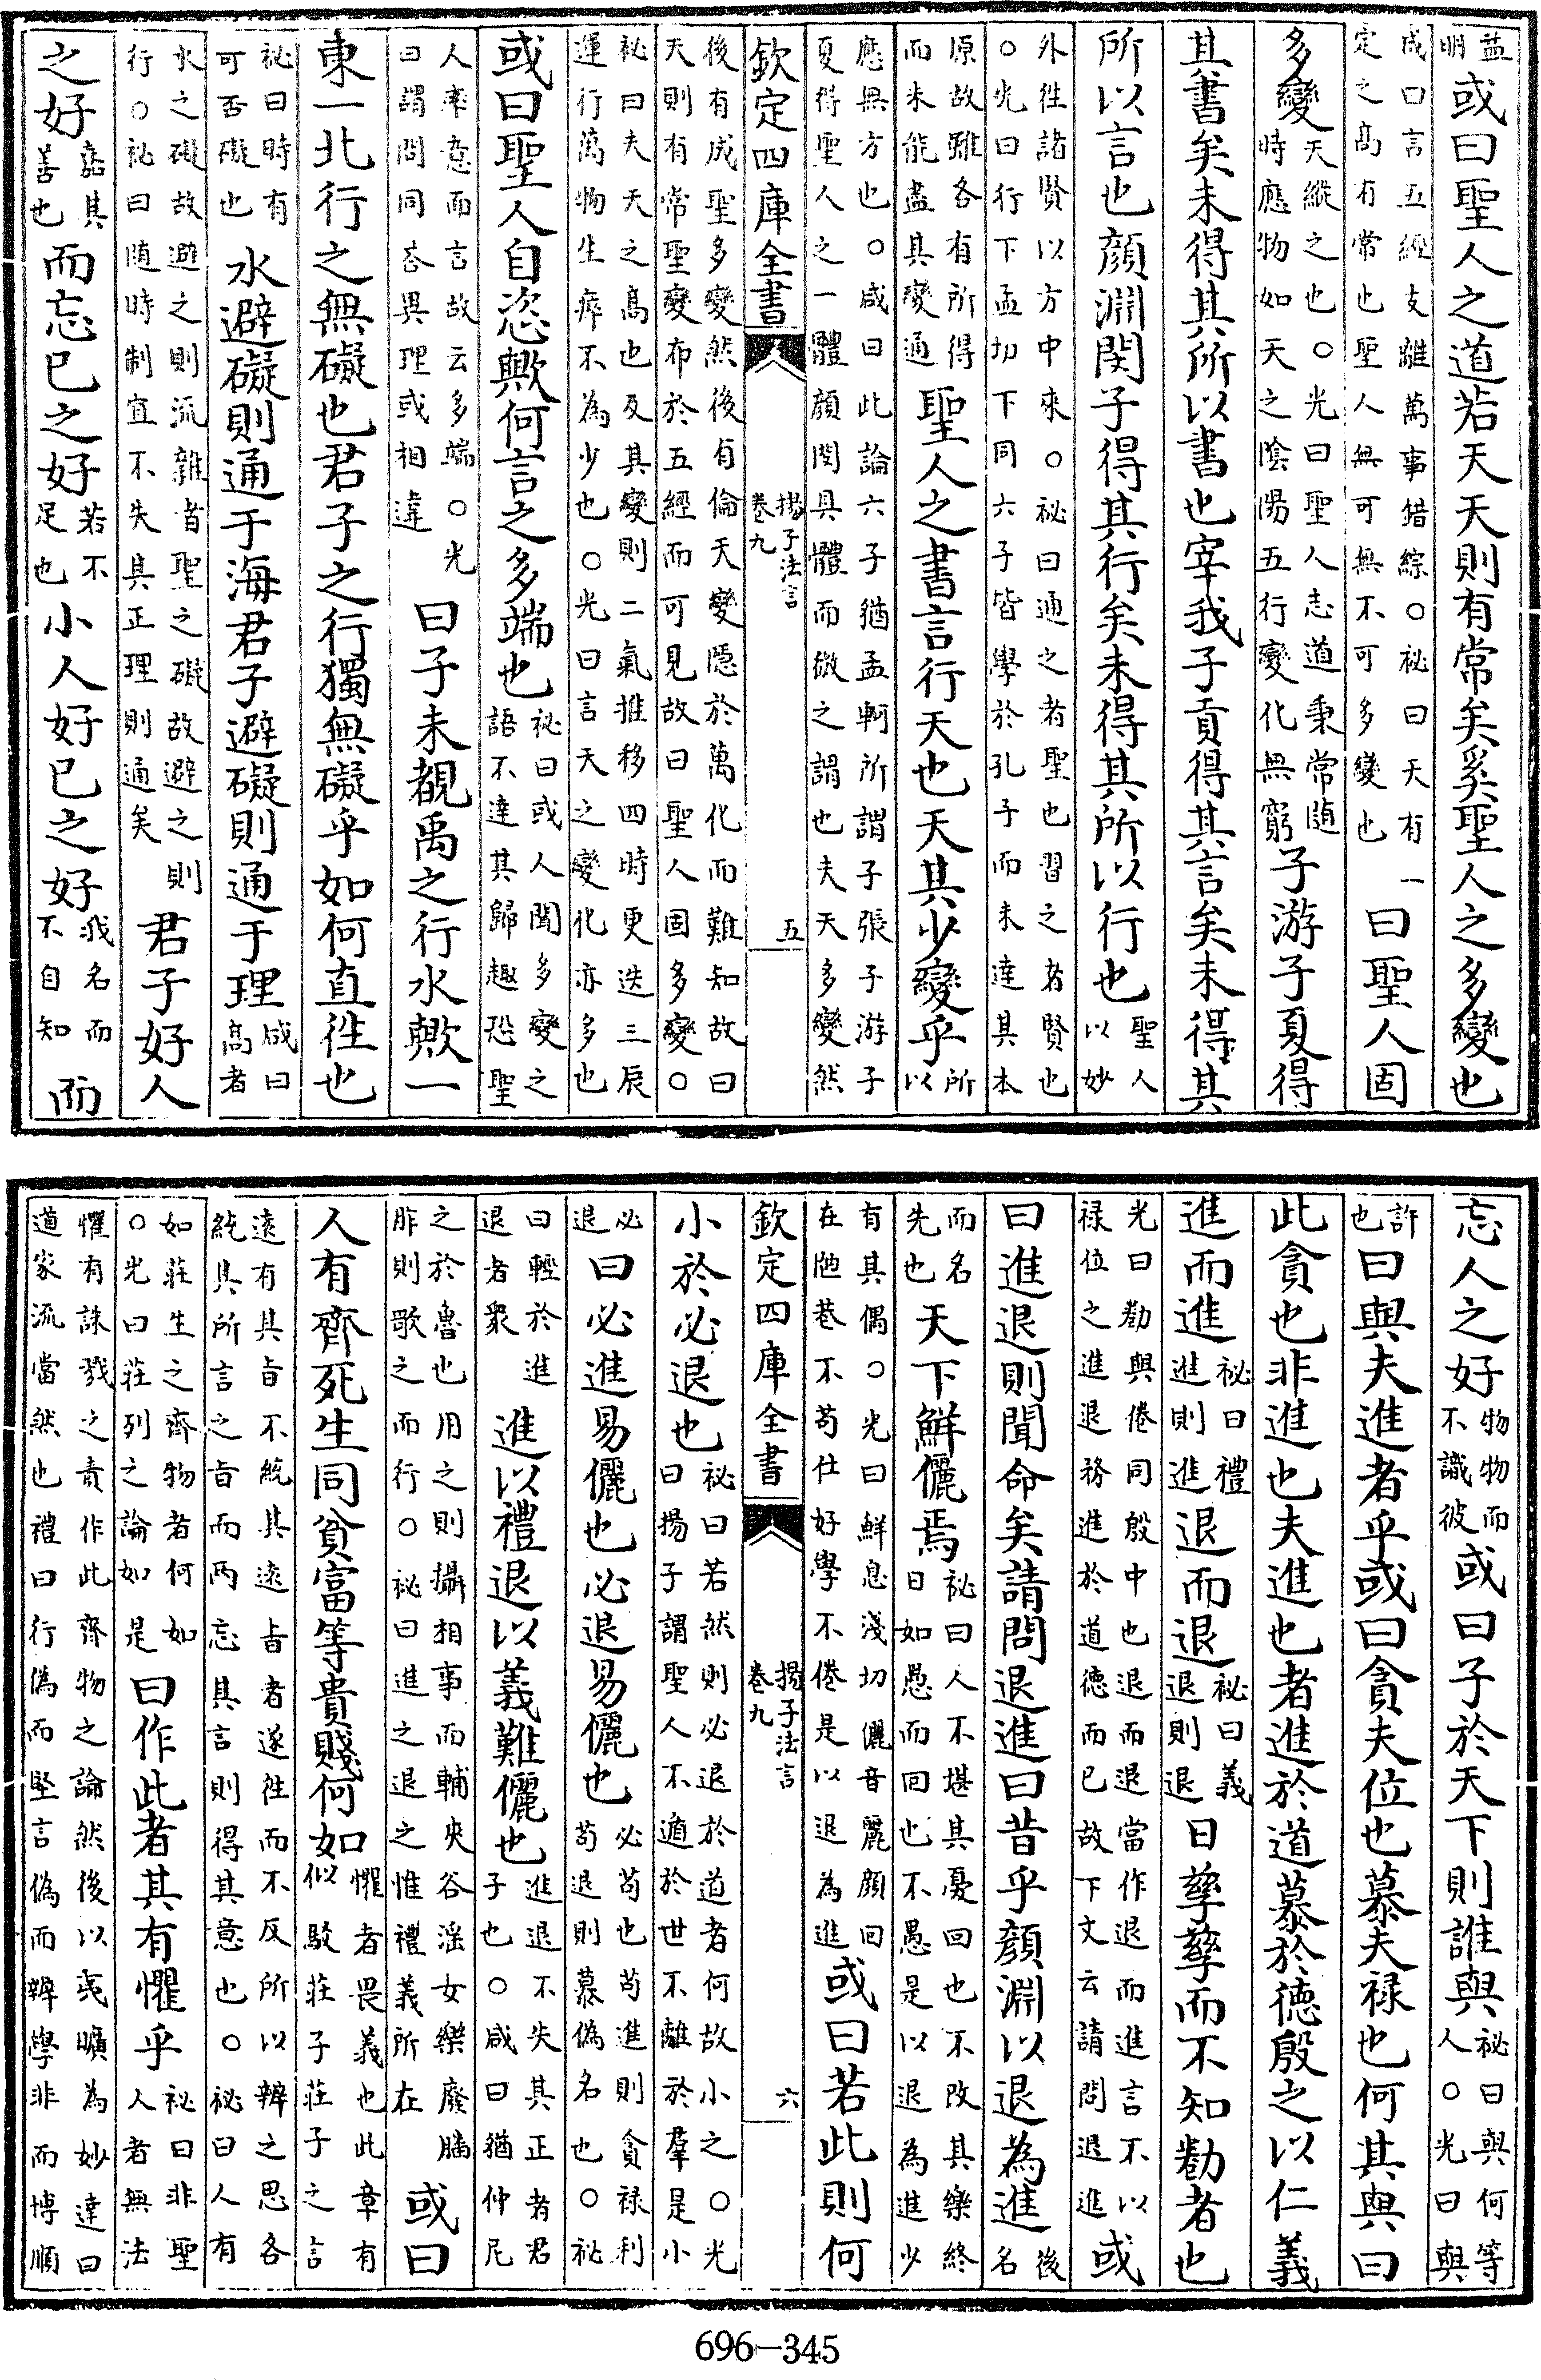 益明或曰聖人之道若天天則有常矣奚聖人之多變也
咸曰言五經支離萬事錯綜○祕曰天有一定之高有常也聖人無可無不可多變也曰聖人固
多變天縱之也○光曰聖人志道秉常隨時應物如天之陰陽五行變化無窮子游子夏得
其書矣未得其所以書也宰我子貢得其言矣未得其
所以言也顔淵閔子得其行矣未得其所以行也聖人以妙
外徃諸賢以方中來○祕曰通之者聖也習之者賢也○光曰行下孟切下同六子皆學於孔子而未達其本
原故雖各有所得而未能盡其變通聖人之書言行天也天其少變乎所以
應無方也○咸曰此論六子猶孟軻所謂子張子游子夏得聖人之一體顔閔具體而微之謂也夫天多變然
欽定四庫全書 揚子法言卷九 五
後有成聖多變然後有倫天變隱於萬化而難知故曰天則有常聖變布於五經而可見故曰聖人固多變○
祕曰夫天之高也及其變則二氣推移四時更迭三辰運行萬物生瘁不為少也○光曰言天之變化亦多也
或曰聖人自恣歟何言之多端也祕曰或人聞多變之語不達其歸趣恐聖
人率意而言故云多端○光曰謂問同荅異理或相違曰子未覩禹之行水歟一
東一北行之無礙也君子之行獨無礙乎如何直徃也
祕曰時有可否礙也水避礙則通于海君子避礙則通于理咸曰高者
水之礙故避之則流雜者聖之礙故避之則行○祕曰隨時制宜不失其正理則通矣君子好人
之好嘉其善也而忘己之好若不足也小人好己之好我名而不自知而
忘人之好物物而不識彼或曰子於天下則誰與祕曰與何等人○光曰與
許也曰與夫進者乎或曰貪夫位也慕夫祿也何其與曰
此貪也非進也夫進也者進於道慕於德殷之以仁義
進而進祕曰禮進則進退而退祕曰義退則退日孳孳而不知勌者也
光曰勌與倦同殷中也退而退當作退而進言不以祿位之進退務進於道德而已故下文云請問退進或
曰進退則聞命矣請問退進曰昔乎顔淵以退為進後名
而名先也天下鮮儷焉祕曰人不堪其憂回也不改其樂終日如愚而回也不愚是以退為進少
有其偶○光曰鮮息淺切儷音麗顔回在陋巷不苟仕好學不倦是以退為進或曰若此則何
欽定四庫全書 揚子法言卷九 六
小於必退也祕曰若然則必退於道者何故小之○光曰揚子謂聖人不遁於世不離於羣是小
必退曰必進易儷也必退易儷也必苟也苟進則貪祿利苟退則慕偽名也○祕
曰輕於進退者衆進以禮退以義難儷也進退不失其正者君子也○咸曰猶仲尼
之於魯也用之則攝相事而輔夾谷淫女樂廢膰胙則歌之而行○祕曰進之退之惟禮義所在或曰
人有齊死生同貧富等貴賤何如懼者畏義也此章有似駮莊子莊子之言
遠有其㫖不統其遠㫖者遂徃而不反所以辨之思各統其所言之㫖而兩忘其言則得其意也○祕曰人有
如莊生之齊物者何如○光曰莊列之論如是曰作此者其有懼乎祕曰非聖人者無法
懼有誅戮之責作此齊物之論然後以夷曠為妙達曰道家流當然也禮曰行偽而堅言偽而辨學非而博順
696-345